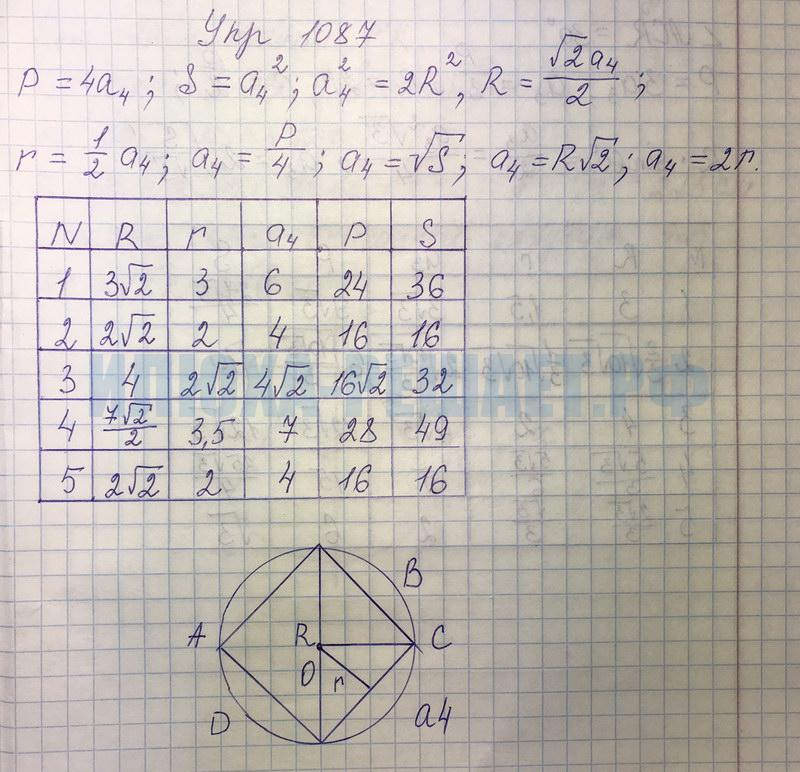 Упр 1087
P = 4a₄; S = a₄²; a₄² = 2R², R = √2a₄/2;
r = 1/2 a₄; a₄ = P/4; a₄ = √S; a₄ = R√2; a₄ = 2r.
N R r a₄ P S
1 3√2 3 6 24 36
2 2√2 2 4 16 16
3 4 2√2 4√2 16√2 32
4 7√2/2 3,5 7 28 49
5 2√2 2 4 16 16
B
A R C
O r
D a4